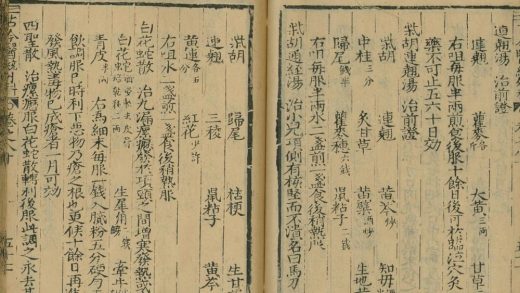 連翹湯 治前證
連翹 瞿麥花 大黃三兩 甘草
右㕮咀每服半兩煎食後服十餘日後可於臨泣穴灸
藥不可止至六十日効
柴胡連翹湯 治前證
柴胡 連翹 黃芩炒 知母
中桂三分 灸甘草 黃蘗酒炒 生地
歸尾錢半 瞿麥穗六錢 鼠粘子二錢
右㕮咀每服半兩水二盞煎一盞食後稍熱
柴胡通經湯 治小兒項側有核堅而不潰名曰馬刀
柴胡 歸尾 桔梗 生甘
連翹 三稜 鼠粘子 黃芩
黃連各五分 紅花少許
右㕮咀水二盞煎一盞食後稍熱服
白花蛇散 治九漏瘰癧發於項頸之間增寒發熱或
白花蛇 生犀角錢 牽牛
青皮 右為細末每服一錢入膩粉五分硬
飲調服巳時利下惡物乃瘡之根也更候十餘日再
發風熱毒物已成瘡者一月可効
四聖散 治瘰癧服白花蛇散轉利後服此調之永去其